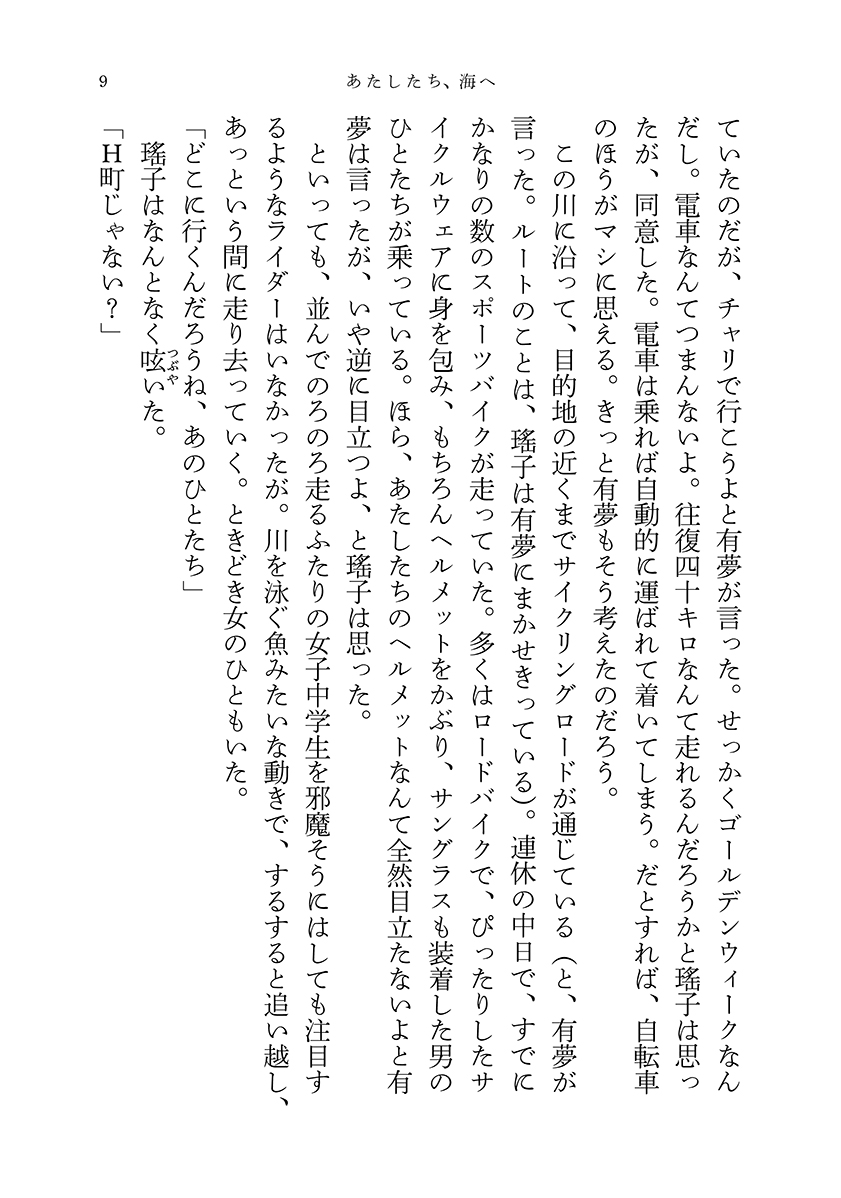 9
あたしたち、海へ
ていたのだが、チャリで行こうよと有夢が言った。せっかくゴールデンウィークなん
だし。電車なんてつまんないよ。往復四十キロなんて走れるんだろうかと瑤子は思っ
たが、同意した。電車は乗れば自動的に運ばれて着いてしまう。だとすれば、自転車
のほうがマシに思える。きっと有夢もそう考えたのだろう。
この川に沿って、目的地の近くまでサイクリングロードが通じている（と、有夢が
言った。ルートのことは、瑤子は有夢にまかせきっている）。連休の中日で、すでに
かなりの数のスポーツバイクが走っていた。多くはロードバイクで、ぴったりしたサ
イクルウェアに身を包み、もちろんヘルメットをかぶり、サングラスも装着した男の
ひとたちが乗っている。ほら、あたしたちのヘルメットなんて全然目立たないよと有
夢は言ったが、いや逆に目立つよ、と瑤子は思った。
といっても、並んでのろのろ走るふたりの女子中学生を邪魔そうにはしても注目す
るようなライダーはいなかったが。川を泳ぐ魚みたいな動きで、するすると追い越し、
あっという間に走り去っていく。ときどき女のひともいた。
「どこに行くんだろうね、あのひとたち」
瑤子はなんとなく呟いた。
つぶや
「H町じゃない？」